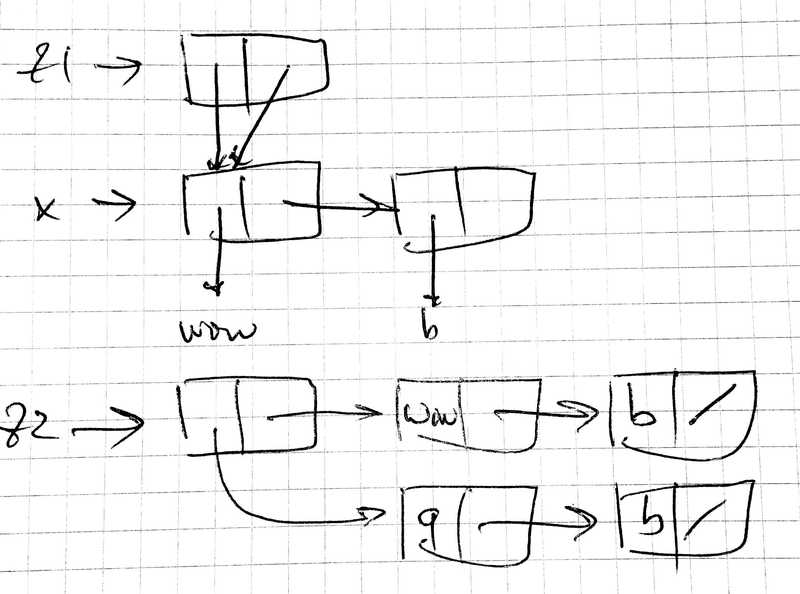 z1
x
wow b
z2 wow b
g b